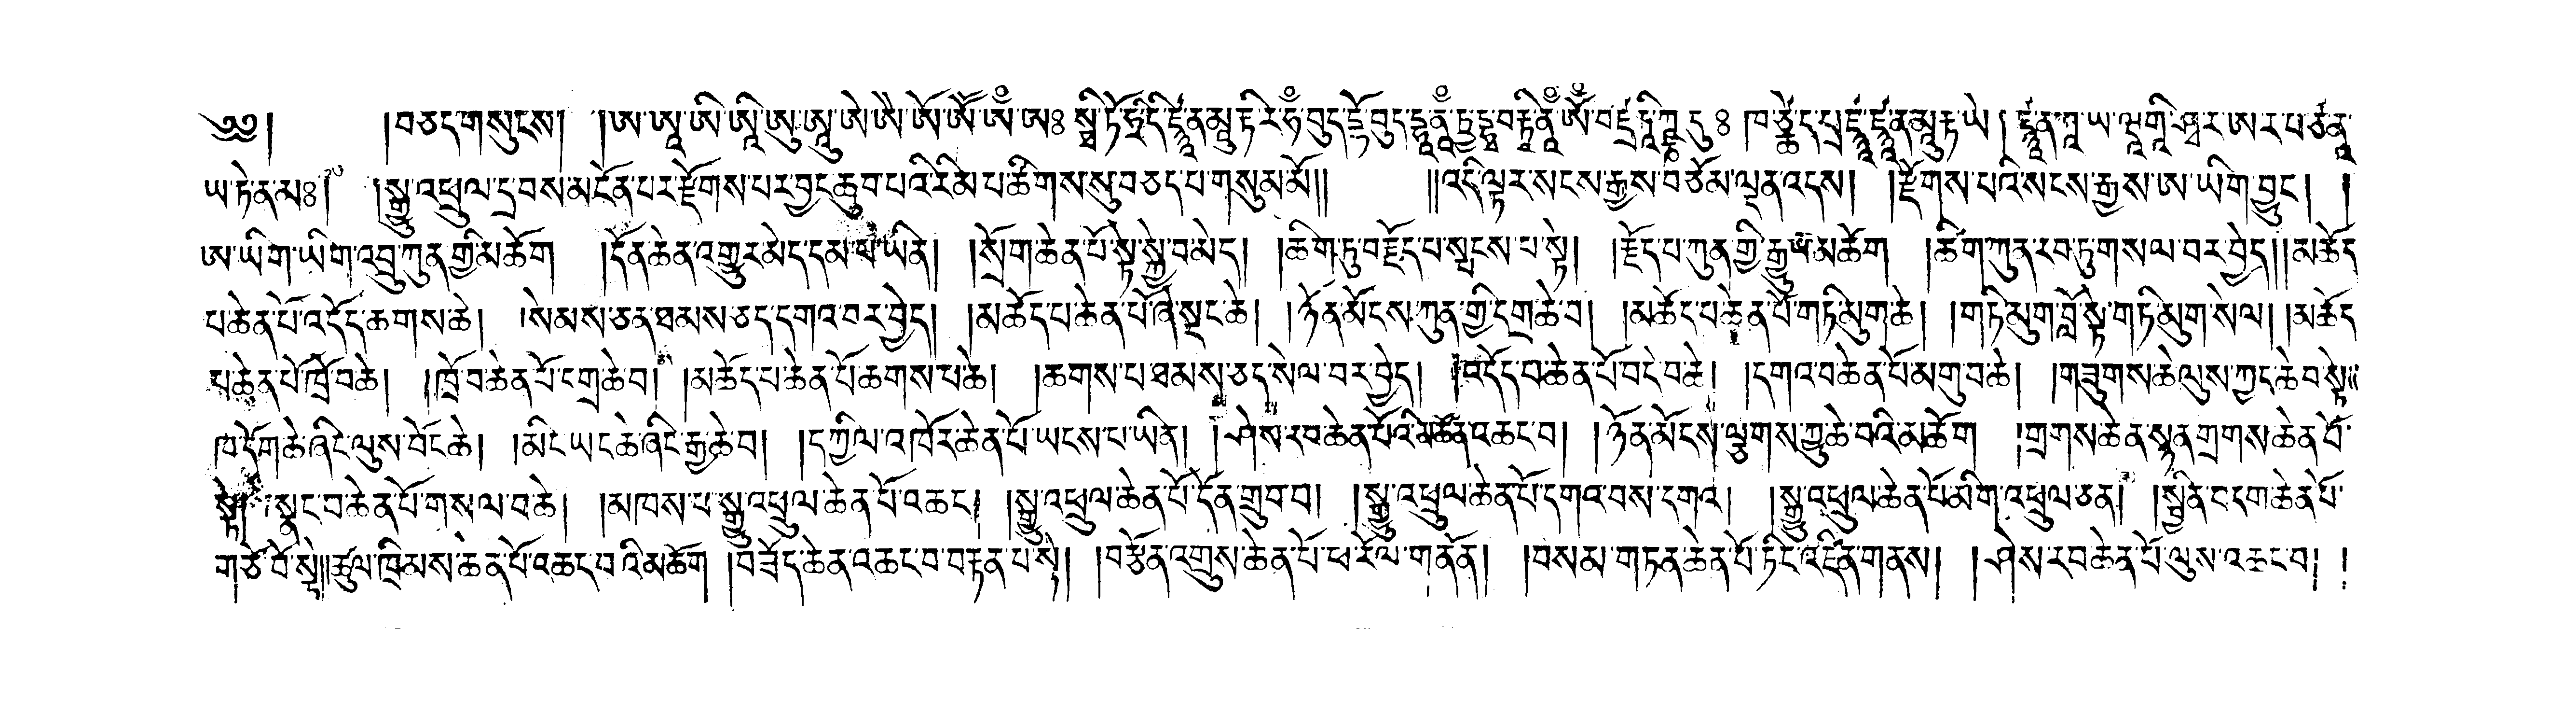 ༄༅། །བཅད་གསུངས། །ཨ་ཨཱ་ཨི་ཨཱི་ཨུ་ཨཱུ་ཨེ་ཨཻ་ཨོ་ཨཽ་ཨཾ་ཨཿ སྠི་ཏོ་ཧྲྀ་དི་ཛྙཱ་ན་མཱུརྟི་ར་ཧཾ་བུད་དྷོ་བུད་དྷཱ་ནཱཾ་ཏྲྱ་དྷྭ་བརྟི་ནཱཾ་ཨོཾ་བཛྲ་ཏཱིཀྵྞ་དུཿ ཁ་ཙྪེ་ད་པྲཛྙཱ་ཛྙཱ་ན་མཱུརྟ་ཡེ། ཛྙཱ་ན་ཀཱ་ཡ་ཝཱ་གཱི་ཤྭ་ར་ཨ་ར་པ་ཙ་ནཱ་
ཡ་ཏེ་ན་མཿ། །སྒྱུ་འཕྲུལ་དྲ་བས་མངོན་པར་རྫོགས་པར་བྱང་ཆུབ་པའི་རིམ་པ་ཚིགས་སུ་བཅད་པ་གསུམ་མོ།། །།འདི་ལྟར་སངས་རྒྱས་བཅོམ་ལྡན་འདས། །རྫོགས་པའི་སངས་རྒྱས་ཨ་ཡིག་བྱུང། །
ཨ་ཡིག་ཡིག་འབྲུ་ཀུན་གྱི་མཆོག །དོན་ཆེན་འགྱུར་མེད་དམ་པ་ཡིན། །སྲོག་ཆེན་པོ་སྟེ་སྐྱེ་བ་མེད། །ཚིག་ཏུ་བརྗོད་པ་སྤངས་པ་སྟེ། །རྗོད་པ་ཀུན་གྱི་རྒྱུ་ཡི་མཆོག །ཚིག་ཀུན་རབ་ཏུ་གསལ་བར་བྱེད།།མཆོད་
པ་ཆེན་པོ་འདོད་ཆགས་ཆེ། །སེམས་ཅན་ཐམས་ཅད་དགའ་བར་བྱེད། །མཆོད་པ་ཆེན་པོ་ཞེ་སྡང་ཆེ། །ཉོན་མོངས་ཀུན་གྱི་དགྲ་ཆེ་བ། །མཆོད་པ་ཆེན་པོ་གཏི་མུག་ཆེ། །གཏི་མུག་བློ་སྟེ་གཏི་མུག་སེལ། །མཆོད་
པ་ཆེན་པོ་ཁྲོ་བ་ཆེ། །ཁྲོ་བ་ཆེན་པོ་དགྲ་ཆེ་བ། །མཆོད་པ་ཆེན་པོ་ཆགས་པ་ཆེ། །ཆགས་པ་ཐམས་ཅད་སེལ་བར་བྱེད། །འདོད་པ་ཆེན་པོ་བདེ་བ་ཆེ། །དགའ་བ་ཆེན་པོ་མགུ་བ་ཆེ། །གཟུགས་ཆེ་ལུས་ཀྱང་ཆེ་བ་སྟེ།།
ཁ་དོག་ཆེ་ཞིང་ལུས་བོང་ཆེ། །མིང་ཡང་ཆེ་ཞིང་རྒྱ་ཆེ་བ། །དཀྱིལ་འཁོར་ཆེན་པོ་ཡངས་པ་ཡིན། །ཤེས་རབ་ཆེན་པོའི་མཚོན་འཆང་བ། །ཉོན་མོངས་ལྕགས་ཀྱུ་ཆེ་བའི་མཆོག །གྲགས་ཆེན་སྙན་གྲགས་ཆེན་པོ་
སྟེ། སྣང་བ་ཆེན་པོ་གསལ་བ་ཆེ། །མཁས་པ་སྒྱུ་འཕྲུལ་ཆེན་པོ་འཆང། །སྒྱུ་འཕྲུལ་ཆེན་པོ་དོན་གྲུབ་བ། །སྒྱུ་འཕྲུལ་ཆེན་པོ་དགའ་བས་དགའ། །སྒྱུ་འཕྲུལ་ཆེན་པོ་མིག་འཕྲུལ་ཅན། །སྦྱིན་བདག་ཆེན་པོ་
གཙོ་བོ་སྟེ།།ཚུལ་ཁྲིམས་ཆེན་པོ་འཆང་བའི་མཆོག །བཟོད་ཆེན་འཆང་བ་བརྟན་པ་སྟེ། །བརྩོན་འགྲུས་ཆེན་པོ་ཕ་རོལ་གནོན། །བསམ་གཏན་ཆེན་པོ་ཏིང་འཛིན་གནས། །ཤེས་རབ་ཆེན་པོ་ལུས་འཆང་བ། །